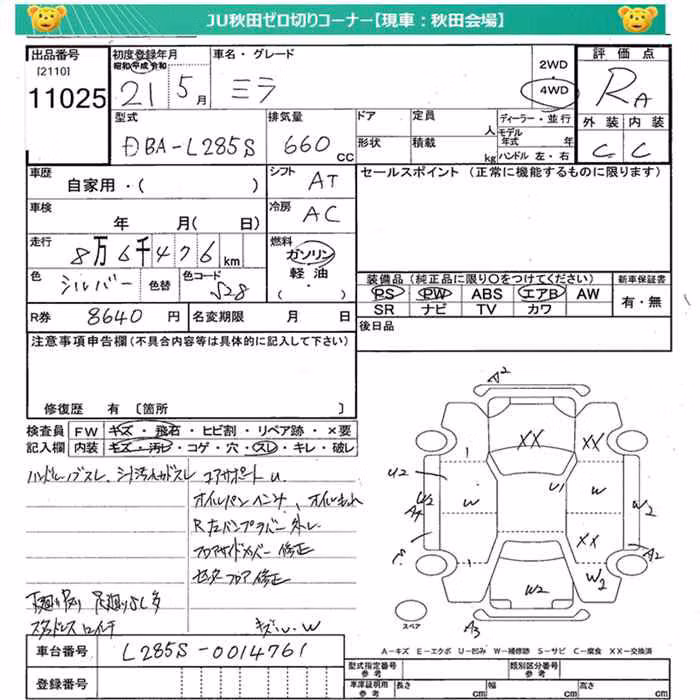 JU秋田ゼロ切りコーナー【現車：秋田会場】
出品番号 初度登録年月 車名・グレード 2WD 評価点
[2110] 昭和 平成 令和 4WD
11025 21 5月 ミラ RA
型式 排気量 ドア 定員 人 ディーラー・並行 外装 内装
DBA-L285S 660cc 形状 積載 kg モデル年式 年 ハンドル 左・右 C C
車歴 シフト セールスポイント（正常に機能するものに限ります）
自家用・（ ） AT
車検 冷房
年 月（ 日） AC
走行 燃料
8万6千476km ガソリン
色 色替 色コード 軽油
シルバー S28 （ ・ ）
装備品（純正品に限り○をつけてください） 新車保証書
PS PW ABS エアB AW 有・無
SR ナビ TV カワ
R券 8640円 名変期限 月 日 後日品
注意事項申告欄（不具合内容等は具体的に記入して下さい）
修復歴 有 [箇所 ]
検査員 FW キズ・飛石・ヒビ割・リペア跡・×要
記入欄 内装 キズ・汚レ・コゲ・穴・スレ・キレ・破レ
ハンドルノブスレ、シート汚れカドスレ コアサポートU
オイルパンヘコミ、オイルもれ
フロアサイドメンバー修正
センターフロア修正
下廻りサビ 足廻りサビ多
スタッドレス
キズ・U・W
A2
XX XX
U2 U2 A4 W U1 W W2
XX A2
W2 W2
A3
スペア
A－キズ E－エクボ U－凹み W－補修跡 S－サビ C－腐食 XX－交換済
車台番号 L285S-0014761
登録番号
型式指定番号 参考 類別区分番号 参考
車庫証明用 参考 長さ cm 幅 cm 高さ cm